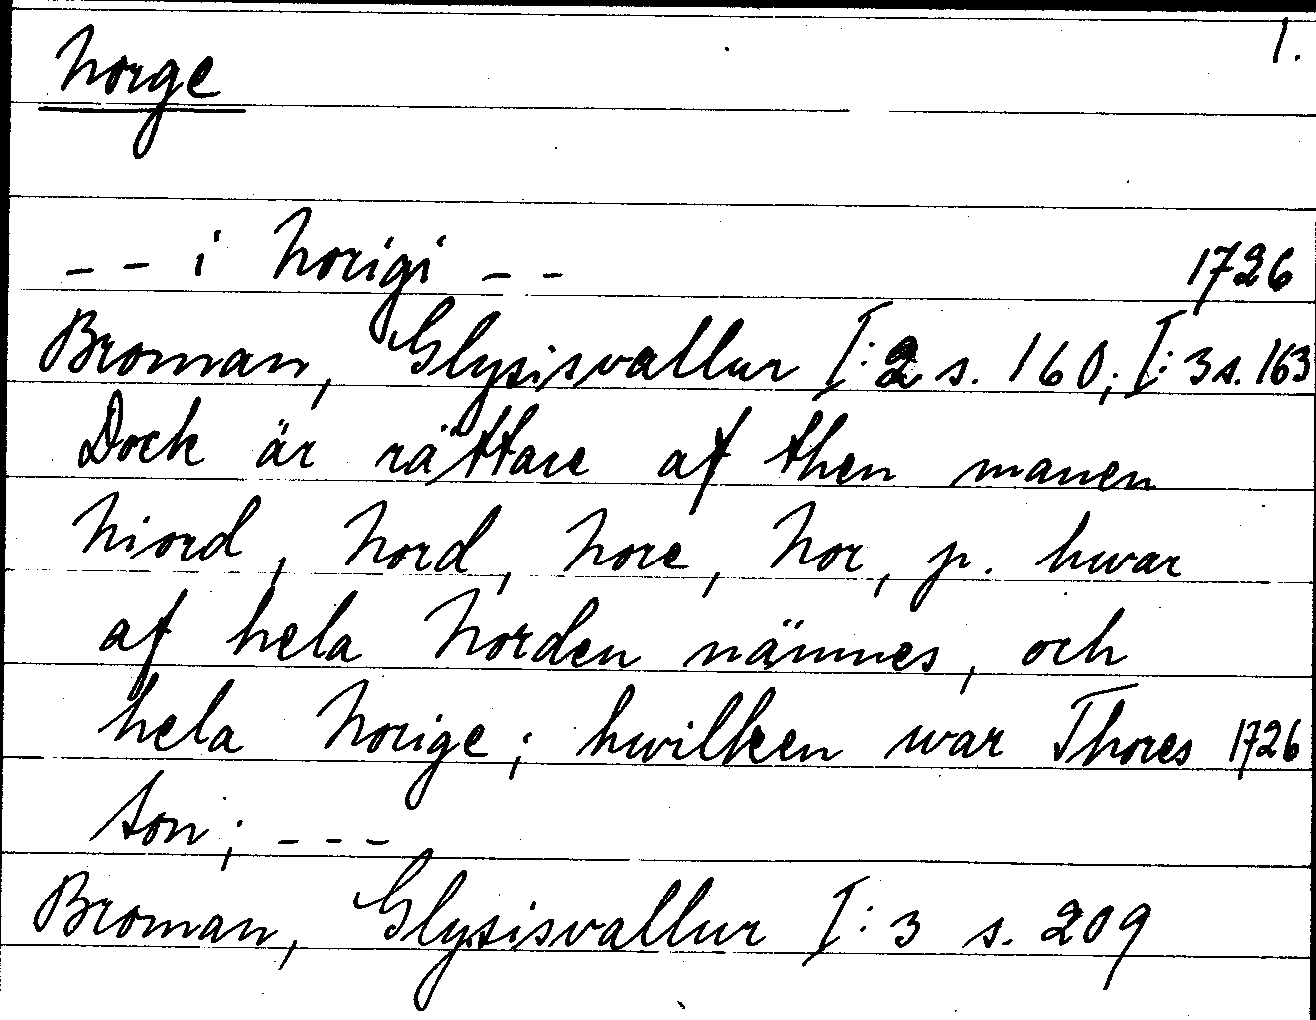 1.
Norge
-- i Norigi --
1726
Broman, Glysisvallur I:2 s. 160; I:3 s. 163
Dock är rättare af then manen
Niord, Nord, Nore, Nor, p. hwar
af hela Norden nämnes, och
hela Norige; hwilken war Thores 1726
son; ---
Broman, Glysisvallur I:3 s. 209